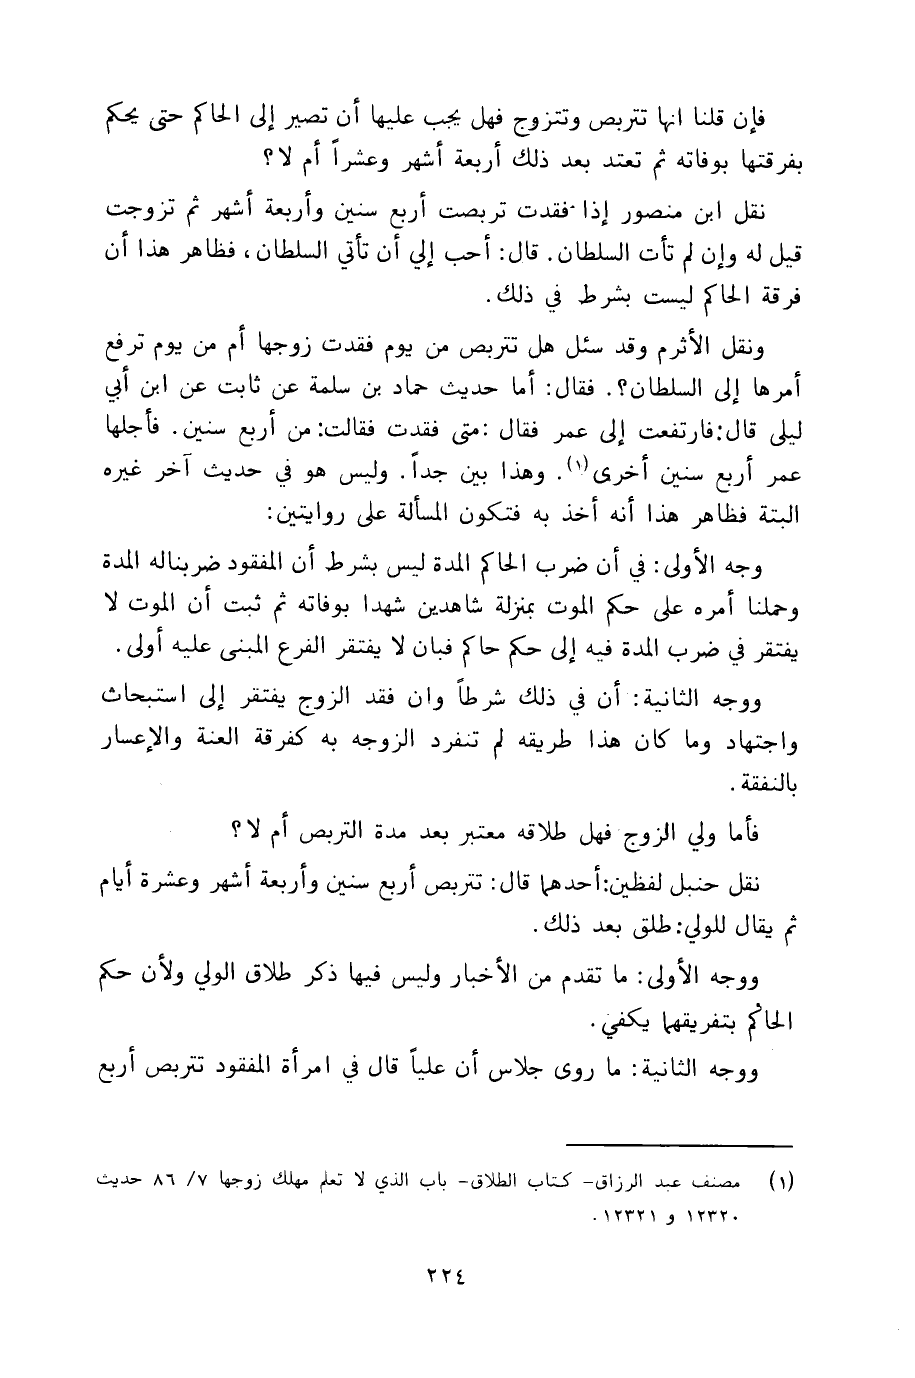 فإن قلنا انها تتربص وتتزوج فهل يجب عليها أن تصير إلى الحاكم حتى يحكم
بفرقتها بوفاته ثم تعتد بعد ذلك أربعة أشهر وعشراً أم لا؟
نقل ابن منصور إذا فقدت تربصت أربع سنين وأربعة أشهر ثم تزوجت
قيل له وإن لم تأت السلطان. قال: أحب إلي أن تأتي السلطان، فظاهر هذا أن
فرقة الحاكم ليست بشرط في ذلك.
ونقل الأثرم وقد سئل هل تتربص من يوم فقدت زوجها أم من يوم ترفع
أمرها إلى السلطان؟. فقال: أما حديث حماد بن سلمة عن ثابت عن ابن أبي
ليلى قال:فارتفعت إلى عمر فقال :متى فقدت فقالت:من أربع سنين. فأجلها
عمر أربع سنين أخرى(١). وهذا بين جداً. وليس هو في حديث آخر غيره
البتة فظاهر هذا أنه أخذ به فتكون المسألة على روايتين:
وجه الأولى: في أن ضرب الحاكم المدة ليس بشرط أن المفقود ضربناله المدة
وحملنا أمره على حكم الموت بمنزلة شاهدين شهدا بوفاته ثم ثبت أن الموت لا
يفتقر في ضرب المدة فيه إلى حكم حاكم فبان لا يفتقر الفرع المبنى عليه أولى.
ووجه الثانية: أن في ذلك شرطاً وان فقد الزوج يفتقر إلى استبحاث
واجتهاد وما كان هذا طريقه لم تنفرد الزوجه به كفرقة العنة والإعسار
بالنفقة.
فأما ولي الزوج فهل طلاقه معتبر بعد مدة التربص أم لا؟
نقل حنبل لفظين:أحدهما قال: تتربص أربع سنين وأربعة أشهر وعشرة أيام
ثم يقال للولي:طلق بعد ذلك.
ووجه الأولى: ما تقدم من الأخبار وليس فيها ذكر طلاق الولي ولأن حكم
الحاكم بتفريقهما يكفي.
ووجه الثانية: ما روى جلاس أن علياً قال في امرأة المفقود تتربص أربع
(١) مصنف عبد الرزاق- كتاب الطلاق- باب الذي لا تعلم مهلك زوجها ٧/ ٨٦ حديث
١٢٣٢٠ و ١٢٣٢١.
٢٢٤